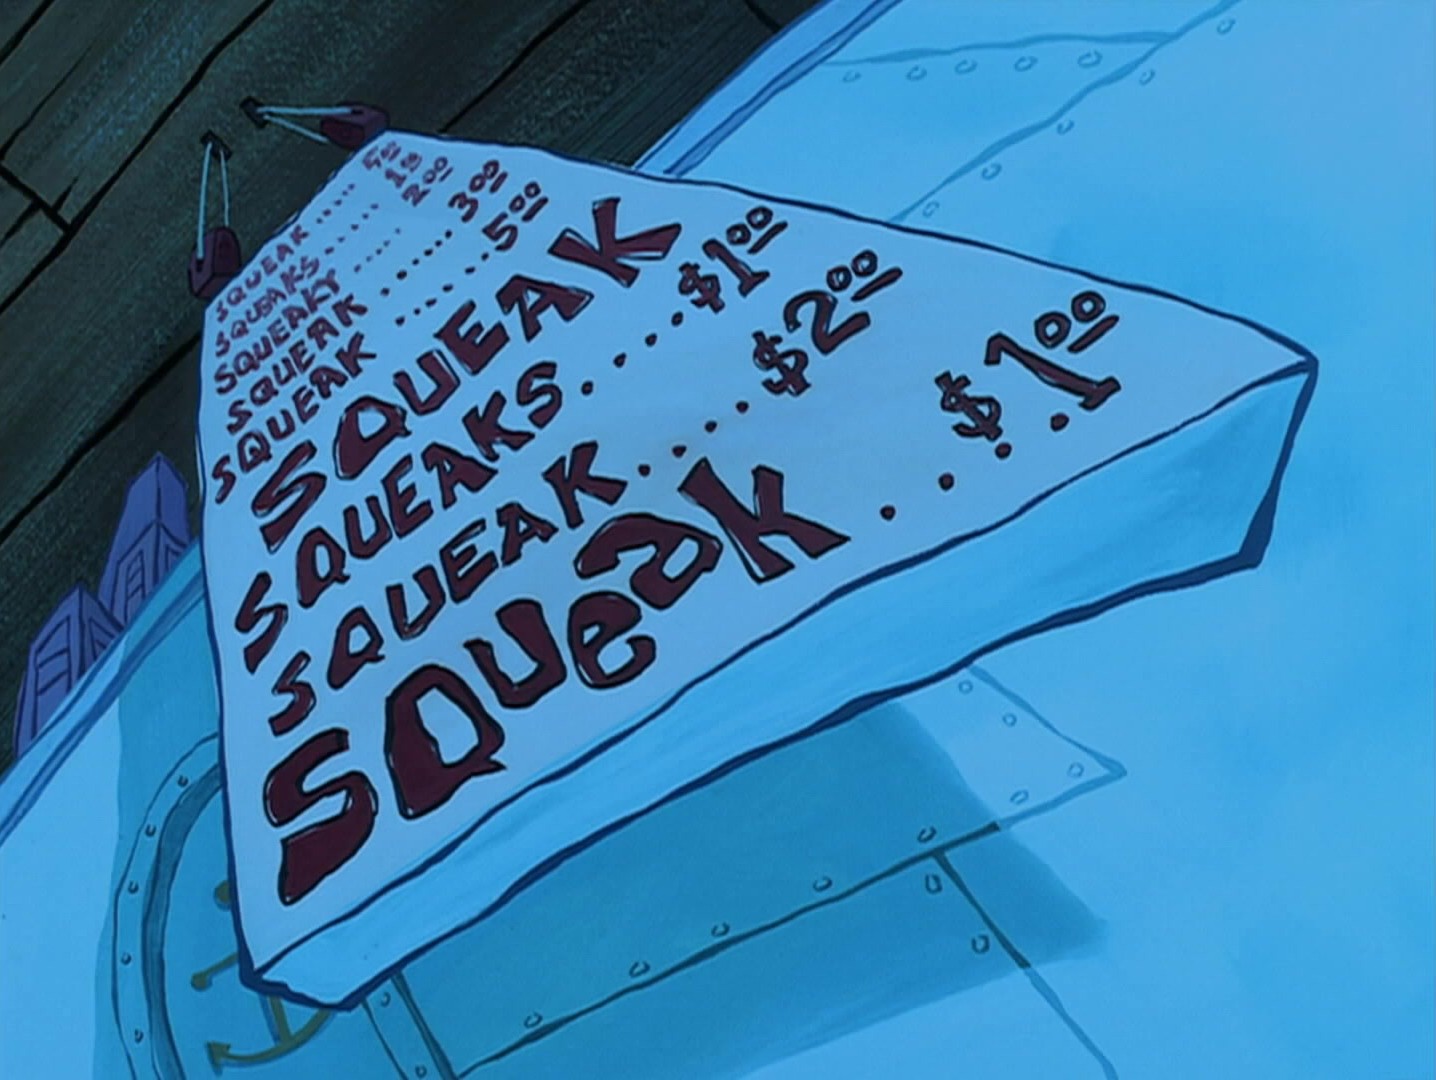 SQUEAK ..... 50
SQUEAKS ...... 10
SQUEAKY ..... 2 00
SQUEAK ...... 3 00
SQUEAK ...... 5 00
SQUEAK
SQUEAKS.... $1 00
SQUEAK.... $2 00
SQUeaK .... $1 00